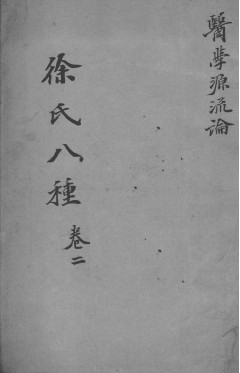 醫學源流論
徐氏八種 卷二